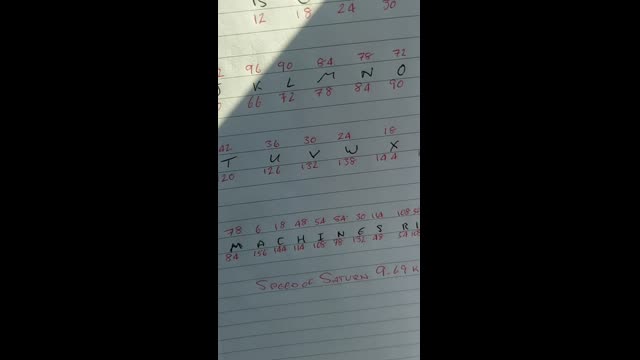 12 18 24 30
96 90 84 78 72
K L M N O
66 72 78 84 90
42 36 30 24 18
T U V W X
20 126 132 138 144
78 6 18 48 54 84 30 114 108
M A C H I N E S R I
84 156 144 114 108 78 132 48 54 108
SPEED OF SATURN 9.69 K